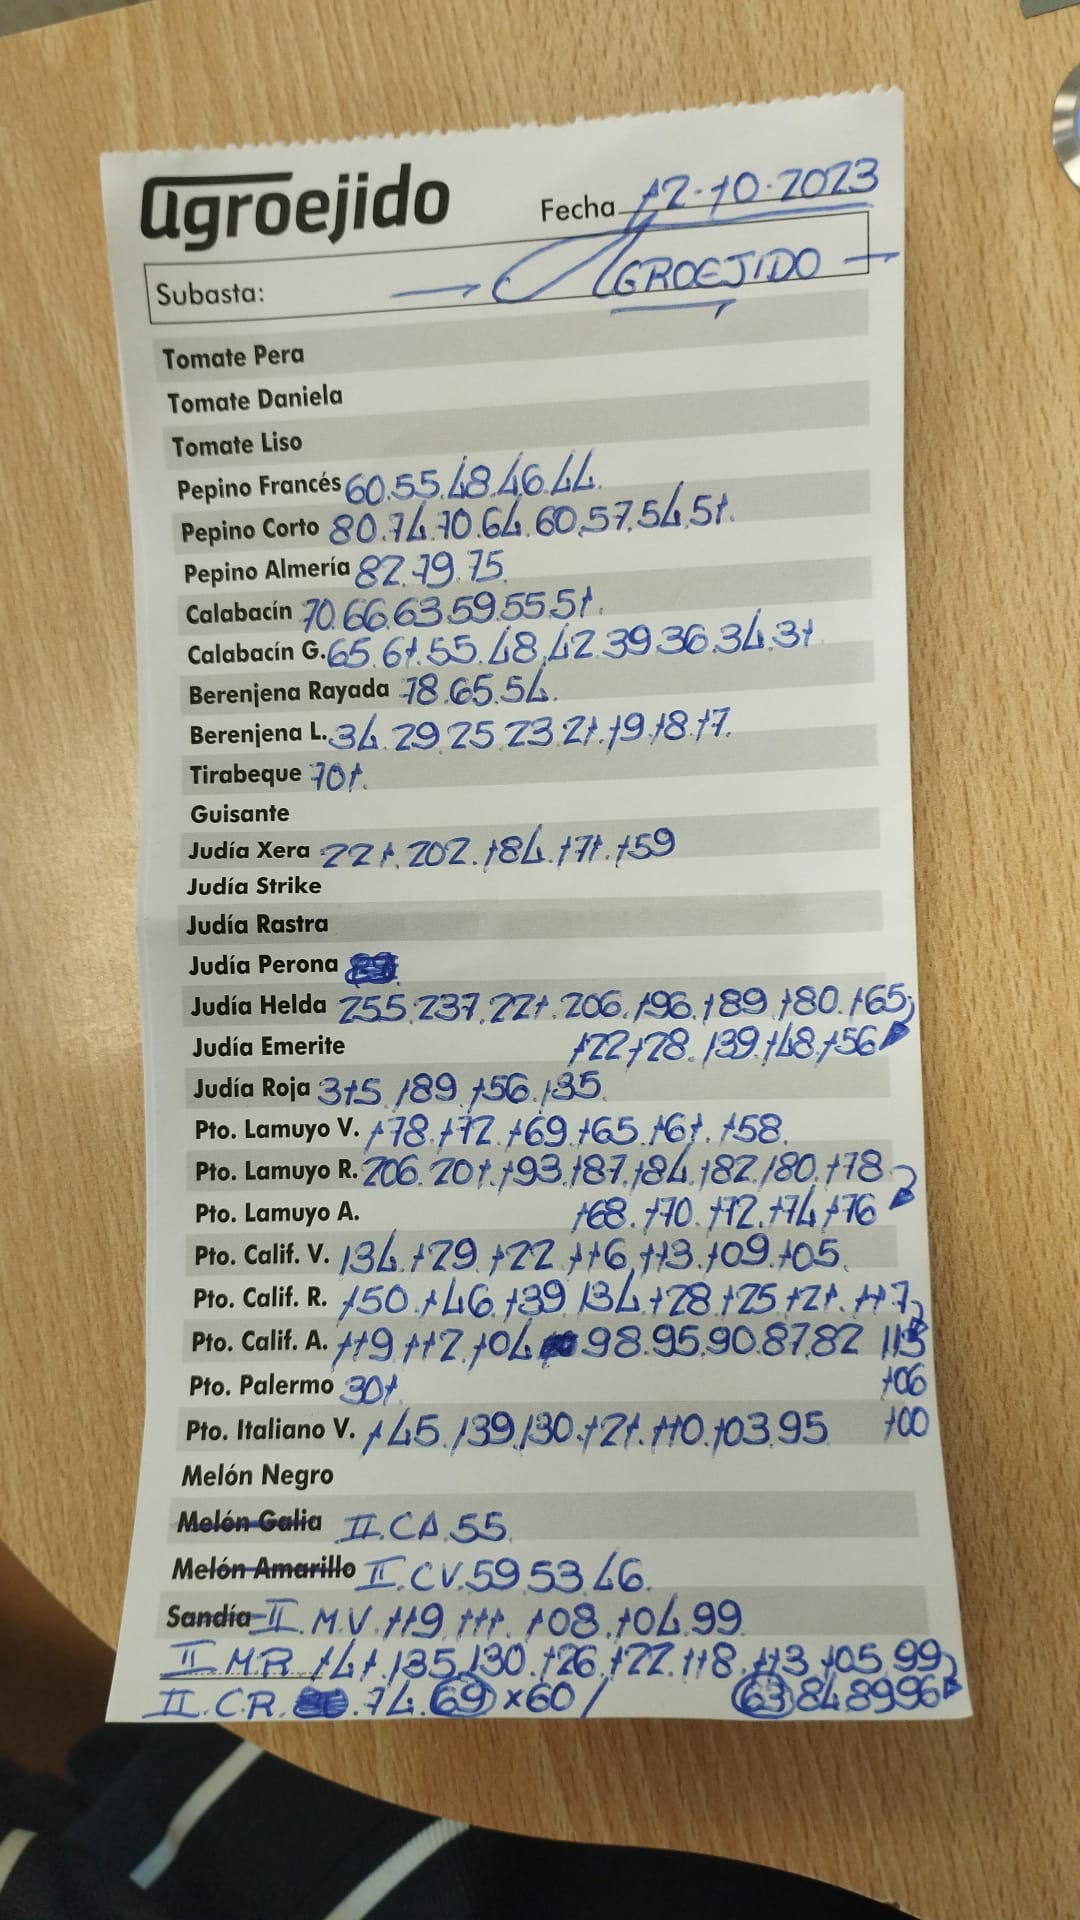 agroejido Fecha 12-10-2023
Subasta: AGROEJIDO
Tomate Pera
Tomate Daniela
Tomate Liso
Pepino Francés 60.55.48.46.44.
Pepino Corto 80.74.70.64.60.57.54.51.
Pepino Almería 82.79.75.
Calabacín 70.66.63.59.55.51.
Calabacín G. 65.61.55.48.42.39.36.34.31
Berenjena Rayada 78.65.54.
Berenjena L. 34.29.25.23.21.19.18.17.
Tirabeque 701.
Guisante
Judía Xera 221.202.184.171.159
Judía Strike
Judía Rastra
Judía Perona
Judía Helda 255.237.221.206.196.189.180.165
Judía Emerite 122.128.139.148.156
Judía Roja 315.189.156.135.
Pto. Lamuyo V. 178.172.169.165.161.158.
Pto. Lamuyo R. 206.201.193.187.184.182.180.178
Pto. Lamuyo A. 168.170.172.174.176
Pto. Calif. V. 134.129.122.116.113.109.105.
Pto. Calif. R. 150.146.139.134.128.125.121.117
Pto. Calif. A. 119.112.104 98.95.90.87.82 113
Pto. Palermo 301. 106
Pto. Italiano V. 145.139.130.121.110.103.95 100
Melón Negro
Melón Galia II.CA.55.
Melón Amarillo II.CV.59.53.46.
Sandía II.M.V.119.111.108.104.99
II.MR 141.135.130.126.122.118.113.105.99
II.C.R. .74.69 x60/ 63 84.89.96